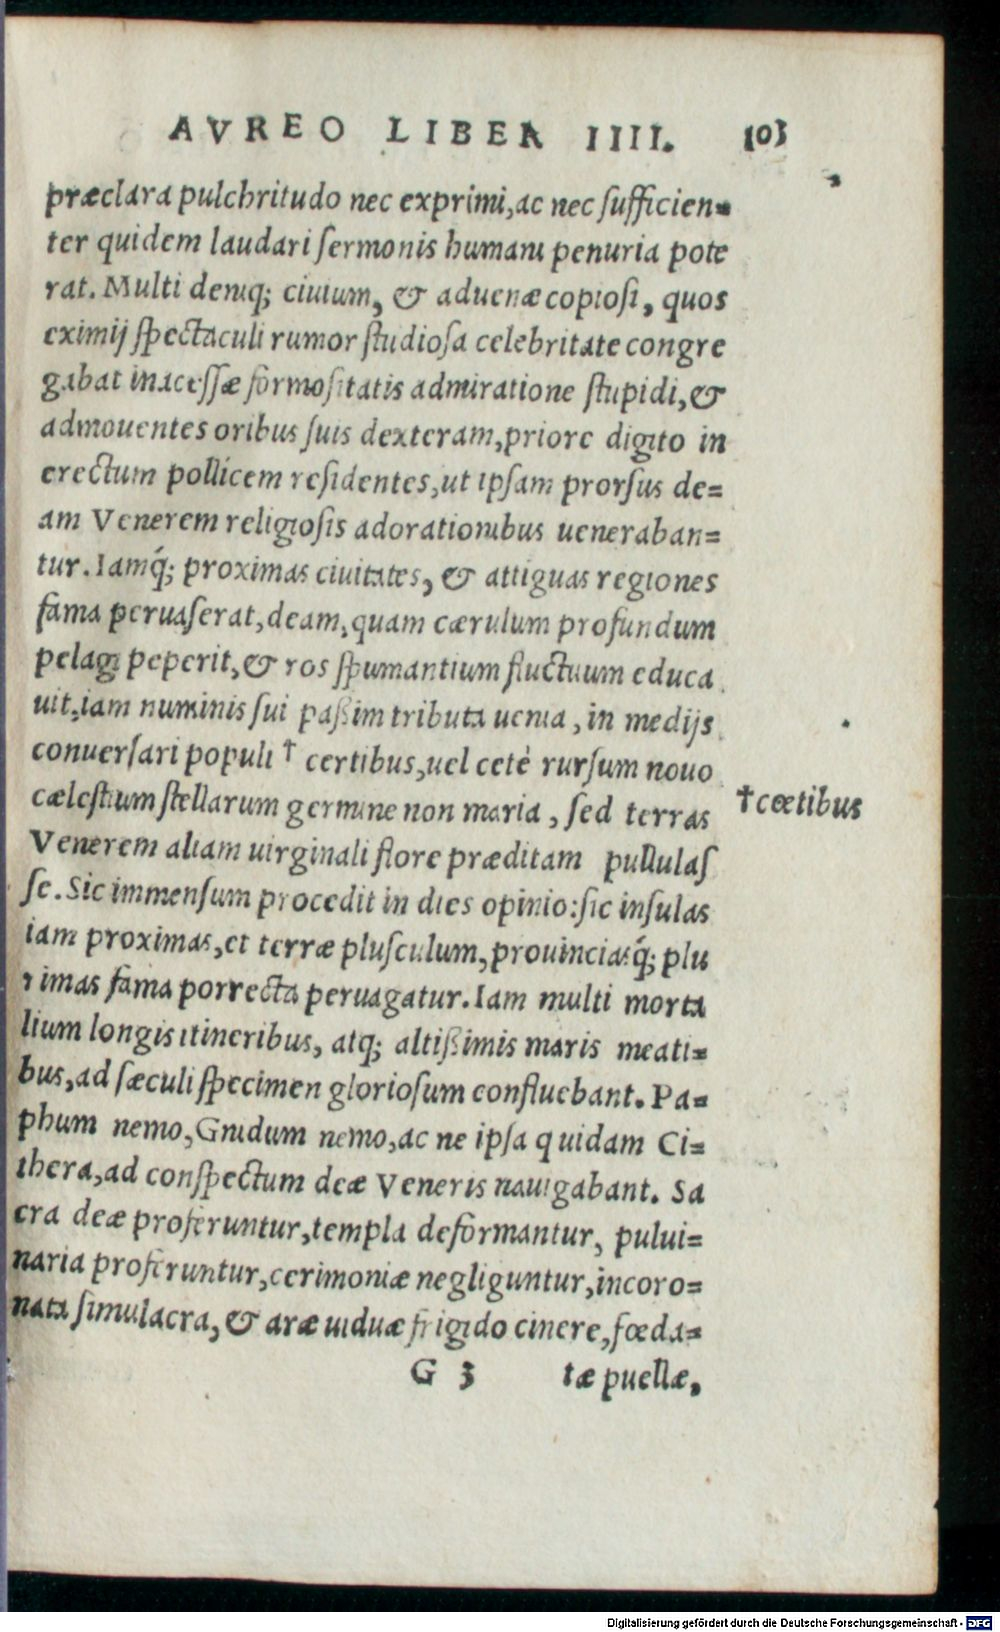 AVREO LIBER IIII. 103
præclara pulchritudo nec exprimi, ac nec ſufficien=
ter quidem laudari ſermonis humani penuria pote
rat. Multi deniq; ciuium, & aduenæ copioſi, quos
eximij ſpectaculi rumor ſtudioſa celebritate congre
gabat inaceſſæ formoſitatis admiratione ſtupidi, &
admouentes oribus ſuis dexteram, priore digito in
erectum pollicem reſidentes, ut ipſam prorſus de=
am Venerem religioſis adorationibus ueneraban=
tur. Iamq́; proximas ciuitates, & attiguas regiones
fama peruaſerat, deam, quam cærulum profundum
pelagi peperit, & ros ſpumantium fluctuum educa
uit, iam numinis ſui paßim tributa uenia, in medijs
conuerſari populi † certibus, uel cetè rurſum nouo
cæleſtium ſtellarum germine non maria, ſed terras
†cœtibus
Venerem aliam uirginali flore præditam pullulaſ
ſe. Sic immenſum procedit in dies opinio: ſic inſulas
iam proximas, et terræ pluſculum, prouinciasq́; plu
rimas fama porrecta peruagatur. Iam multi morta
lium longis itineribus, atq; altißimis maris meati=
bus, ad ſæculi ſpecimen glorioſum confluebant. Pa=
phum nemo, Gnidum nemo, ac ne ipſa quidam Ci=
thera, ad conſpectum deæ Veneris nauigabant. Sa
cra deæ proferuntur, templa deformantur, pului=
naria proferuntur, cerimoniæ negliguntur, incoro=
nata ſimulacra, & aræ uiduæ frigido cinere, fœda=
G 3 tæ puellæ,
Digitalisierung gefördert durch die Deutsche Forschungsgemeinschaft - DFG